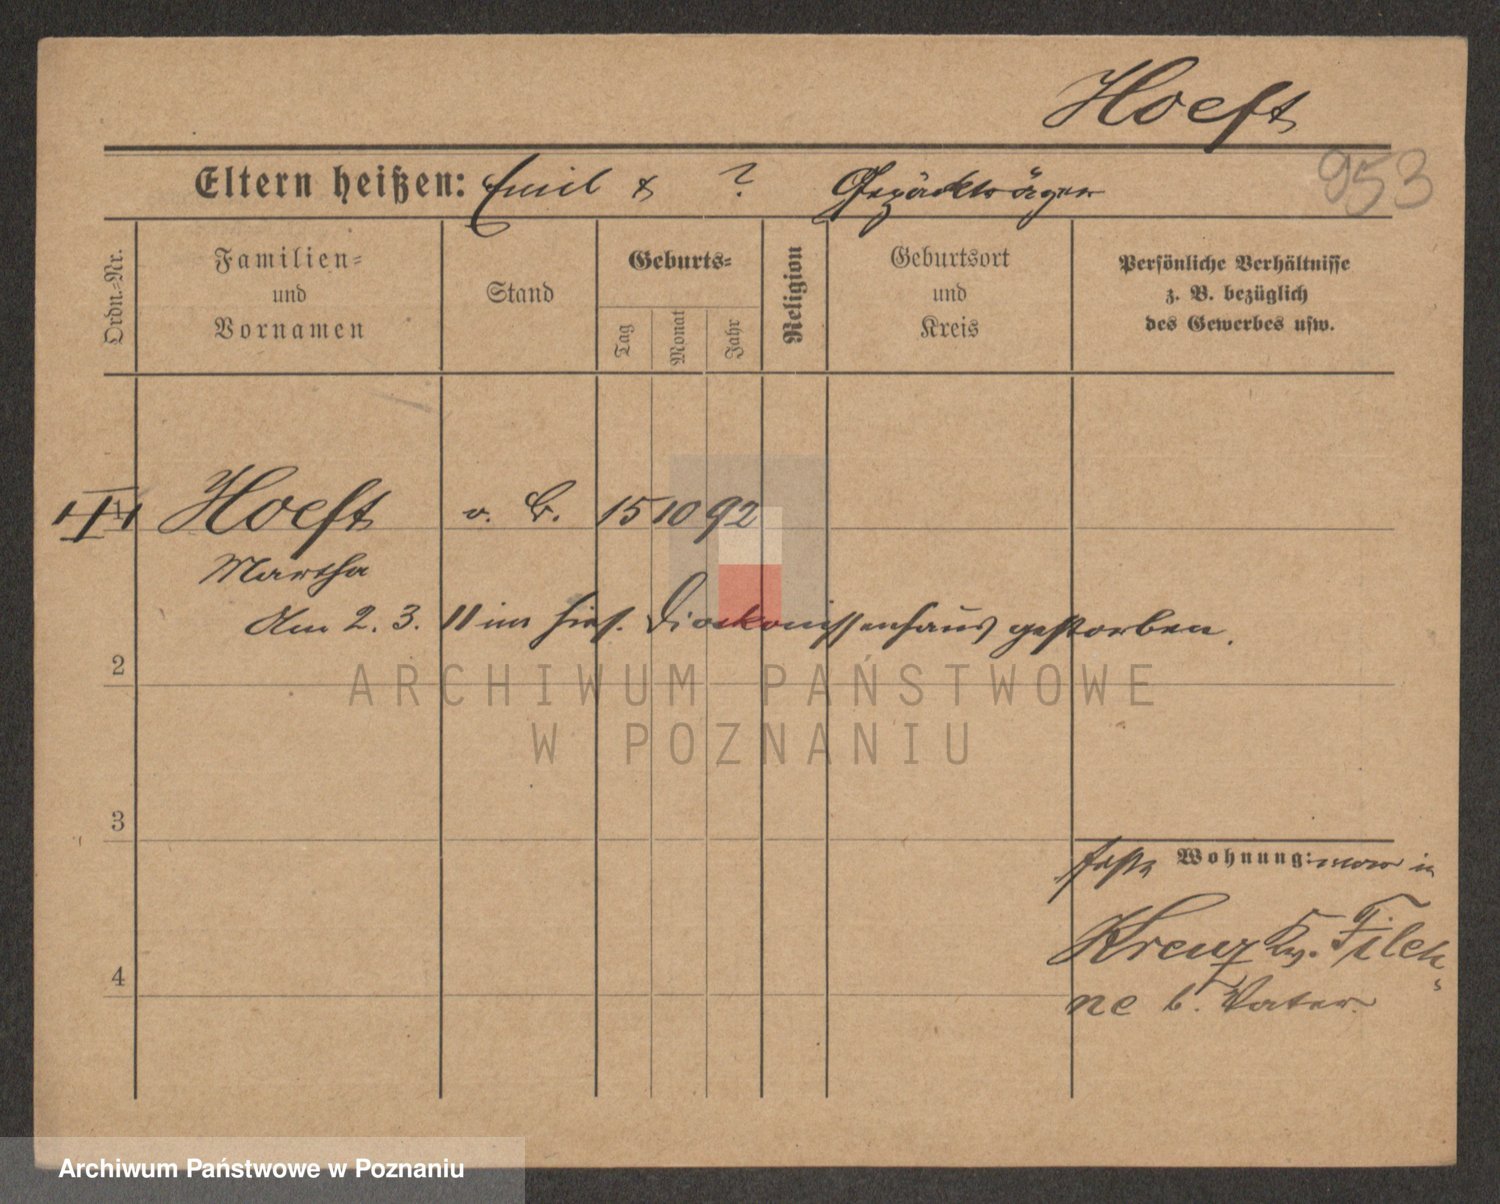 Hoeft
953
Eltern heißen: Emil & ? Gepäckträger
Ordn.-Nr.
Familien-
und
Vornamen
Stand
Geburts-
Tag
Monat
Jahr
Religion
Geburtsort
und
Kreis
Persönliche Verhältnisse
z. B. bezüglich
des Gewerbes usw.
Hoeft o. B. 15 10 92
Martha
Am 2. 3. 11 im hies. Diakonissenhaus gestorben.
2
3
4
Wohnung: war in
Kreuz Kr. Fileh-
ne b. Vater.
ARCHIWUM PAŃSTWOWE
W POZNANIU
Archiwum Państwowe w Poznaniu